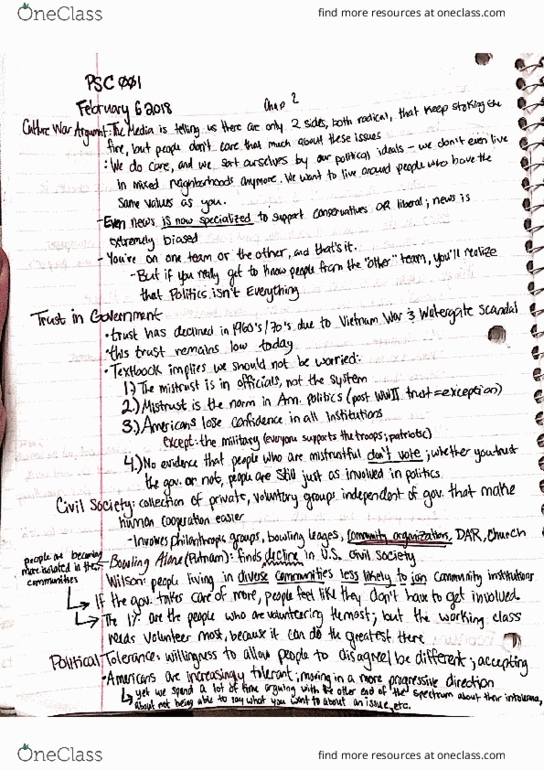 OneClass
find more resources at oneclass.com
PSC 001
February 6 2018
Chap 2
Culture War Argument: The Media is telling us there are only 2 sides, both radical, that keep stoking the
fire, but people don't care that much about these issues
: We do care, and we sort ourselves by our political ideals - we don't even live
in mixed neighborhoods anymore. We want to live around people who have the
same values as you.
- Even news is now specialized to support conservatives OR liberal; news is
extremely biased
- You're on one team or the other, and that's it.
- But if you really get to know people from the "other" team, you'll realize
that Politics isn't Everything
Trust in Government
• trust has declined in 1960's/70's due to Vietnam War & Watergate Scandal
• this trust remains low today
• Textbook implies we should not be worried:
1.) The mistrust is in officials, not the system
2.) Mistrust is the norm in Am. politics (post WWII trust = exception)
3.) Americans lose confidence in all institutions
Except: the military (everyone supports the troops; patriotic)
4.) No evidence that people who are mistrustful don't vote; whether you trust
the gov. or not, people are still just as involved in politics
Civil Society: collection of private, voluntary groups independent of gov. that make
human cooperation easier
- Involves philanthropic groups, bowling leages, community organizations, DAR, Church
people are becoming
more isolated in their
communities
- Bowling Alone (Putnam): finds decline in U.S. civil society
Wilson: people living in diverse communities less likely to join community institutions
If the gov. takes care of more, people feel like they don't have to get involved
The 1% are the people who are volunteering the most; but the working class
needs volunteer most, because it can do the greatest there
Political Tolerance: willingness to allow people to disagree/be different; accepting
• Americans are increasingly tolerant; moving in a more progressive direction
yet we spend a lot of time arguing with the other end of the spectrum about their intolerance,
about not being able to say what you want to about an issue, etc.
OneClass
find more resources at oneclass.com